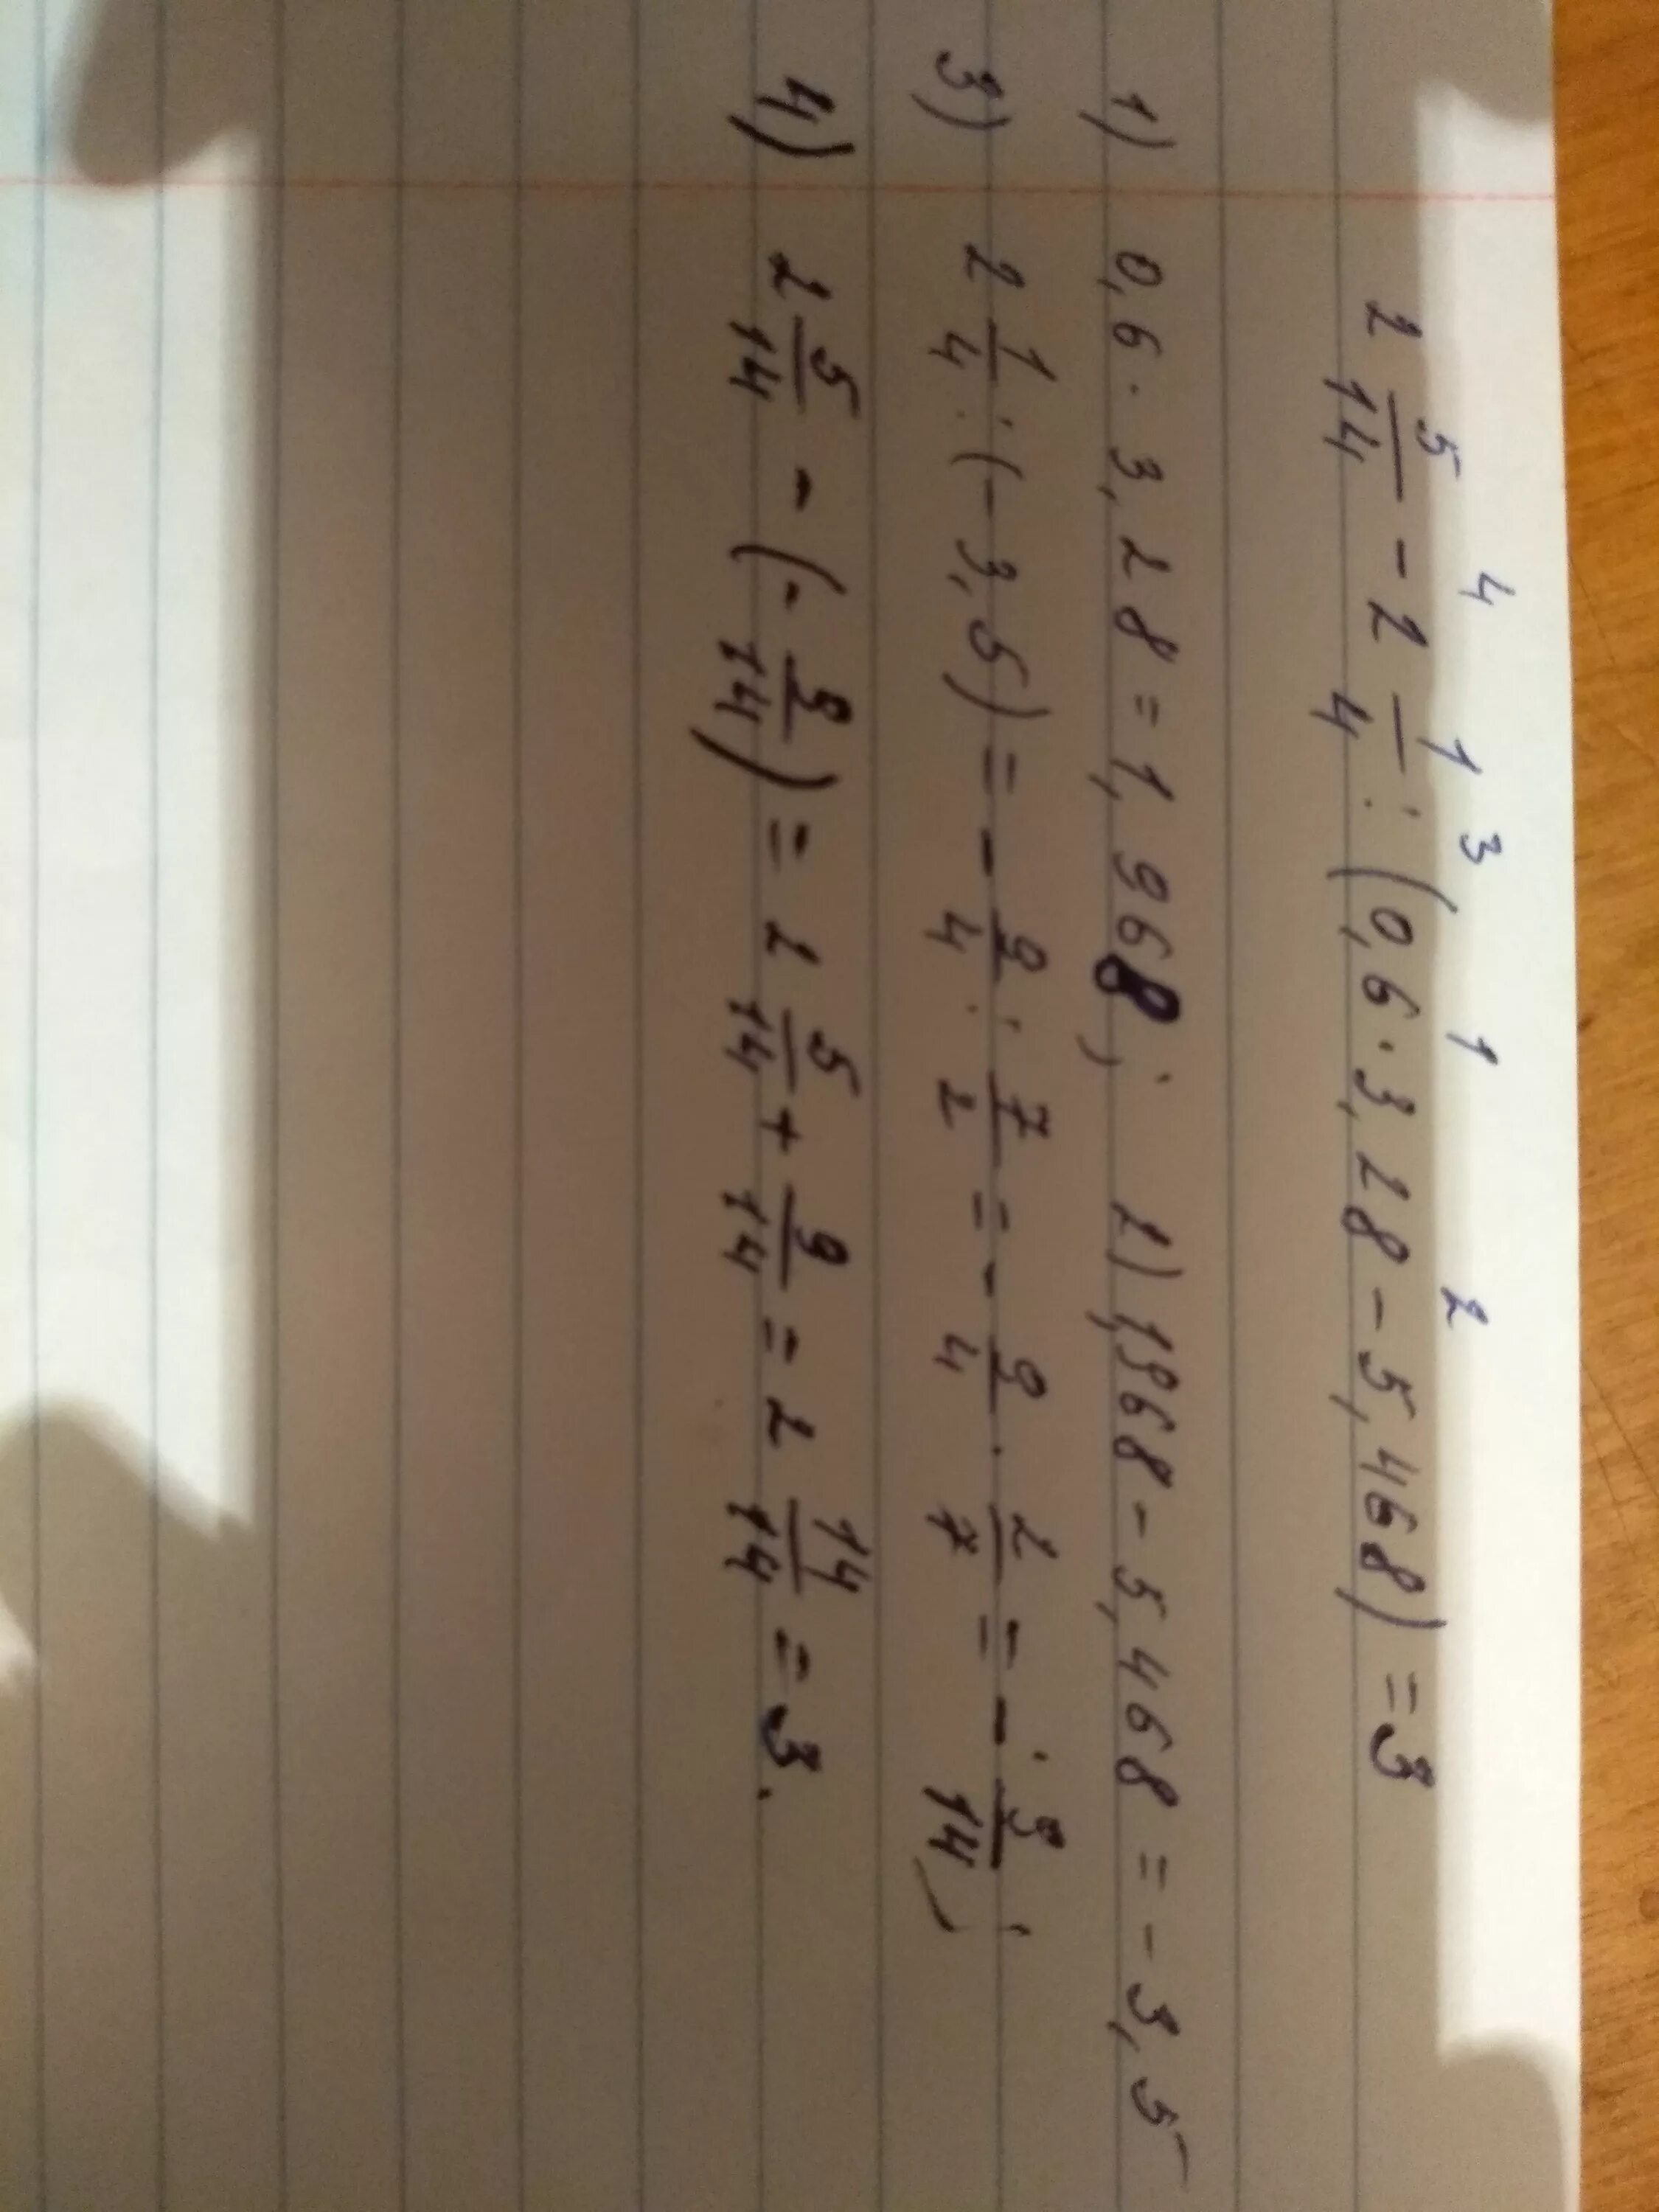 4 3 1 2
2 5/14 - 2 1/4 : (0,6 · 3,28 - 5,468) = 3
1) 0,6 · 3,28 = 1,968; 2) 1,1968 - 5,468 = -3,5
3) 2 1/4 : (-3,5) = - 9/4 : 7/2 = - 9/4 · 2/7 = - 9/14;
4) 2 5/14 - (- 9/14) = 2 5/14 + 9/14 = 2 14/14 = 3.